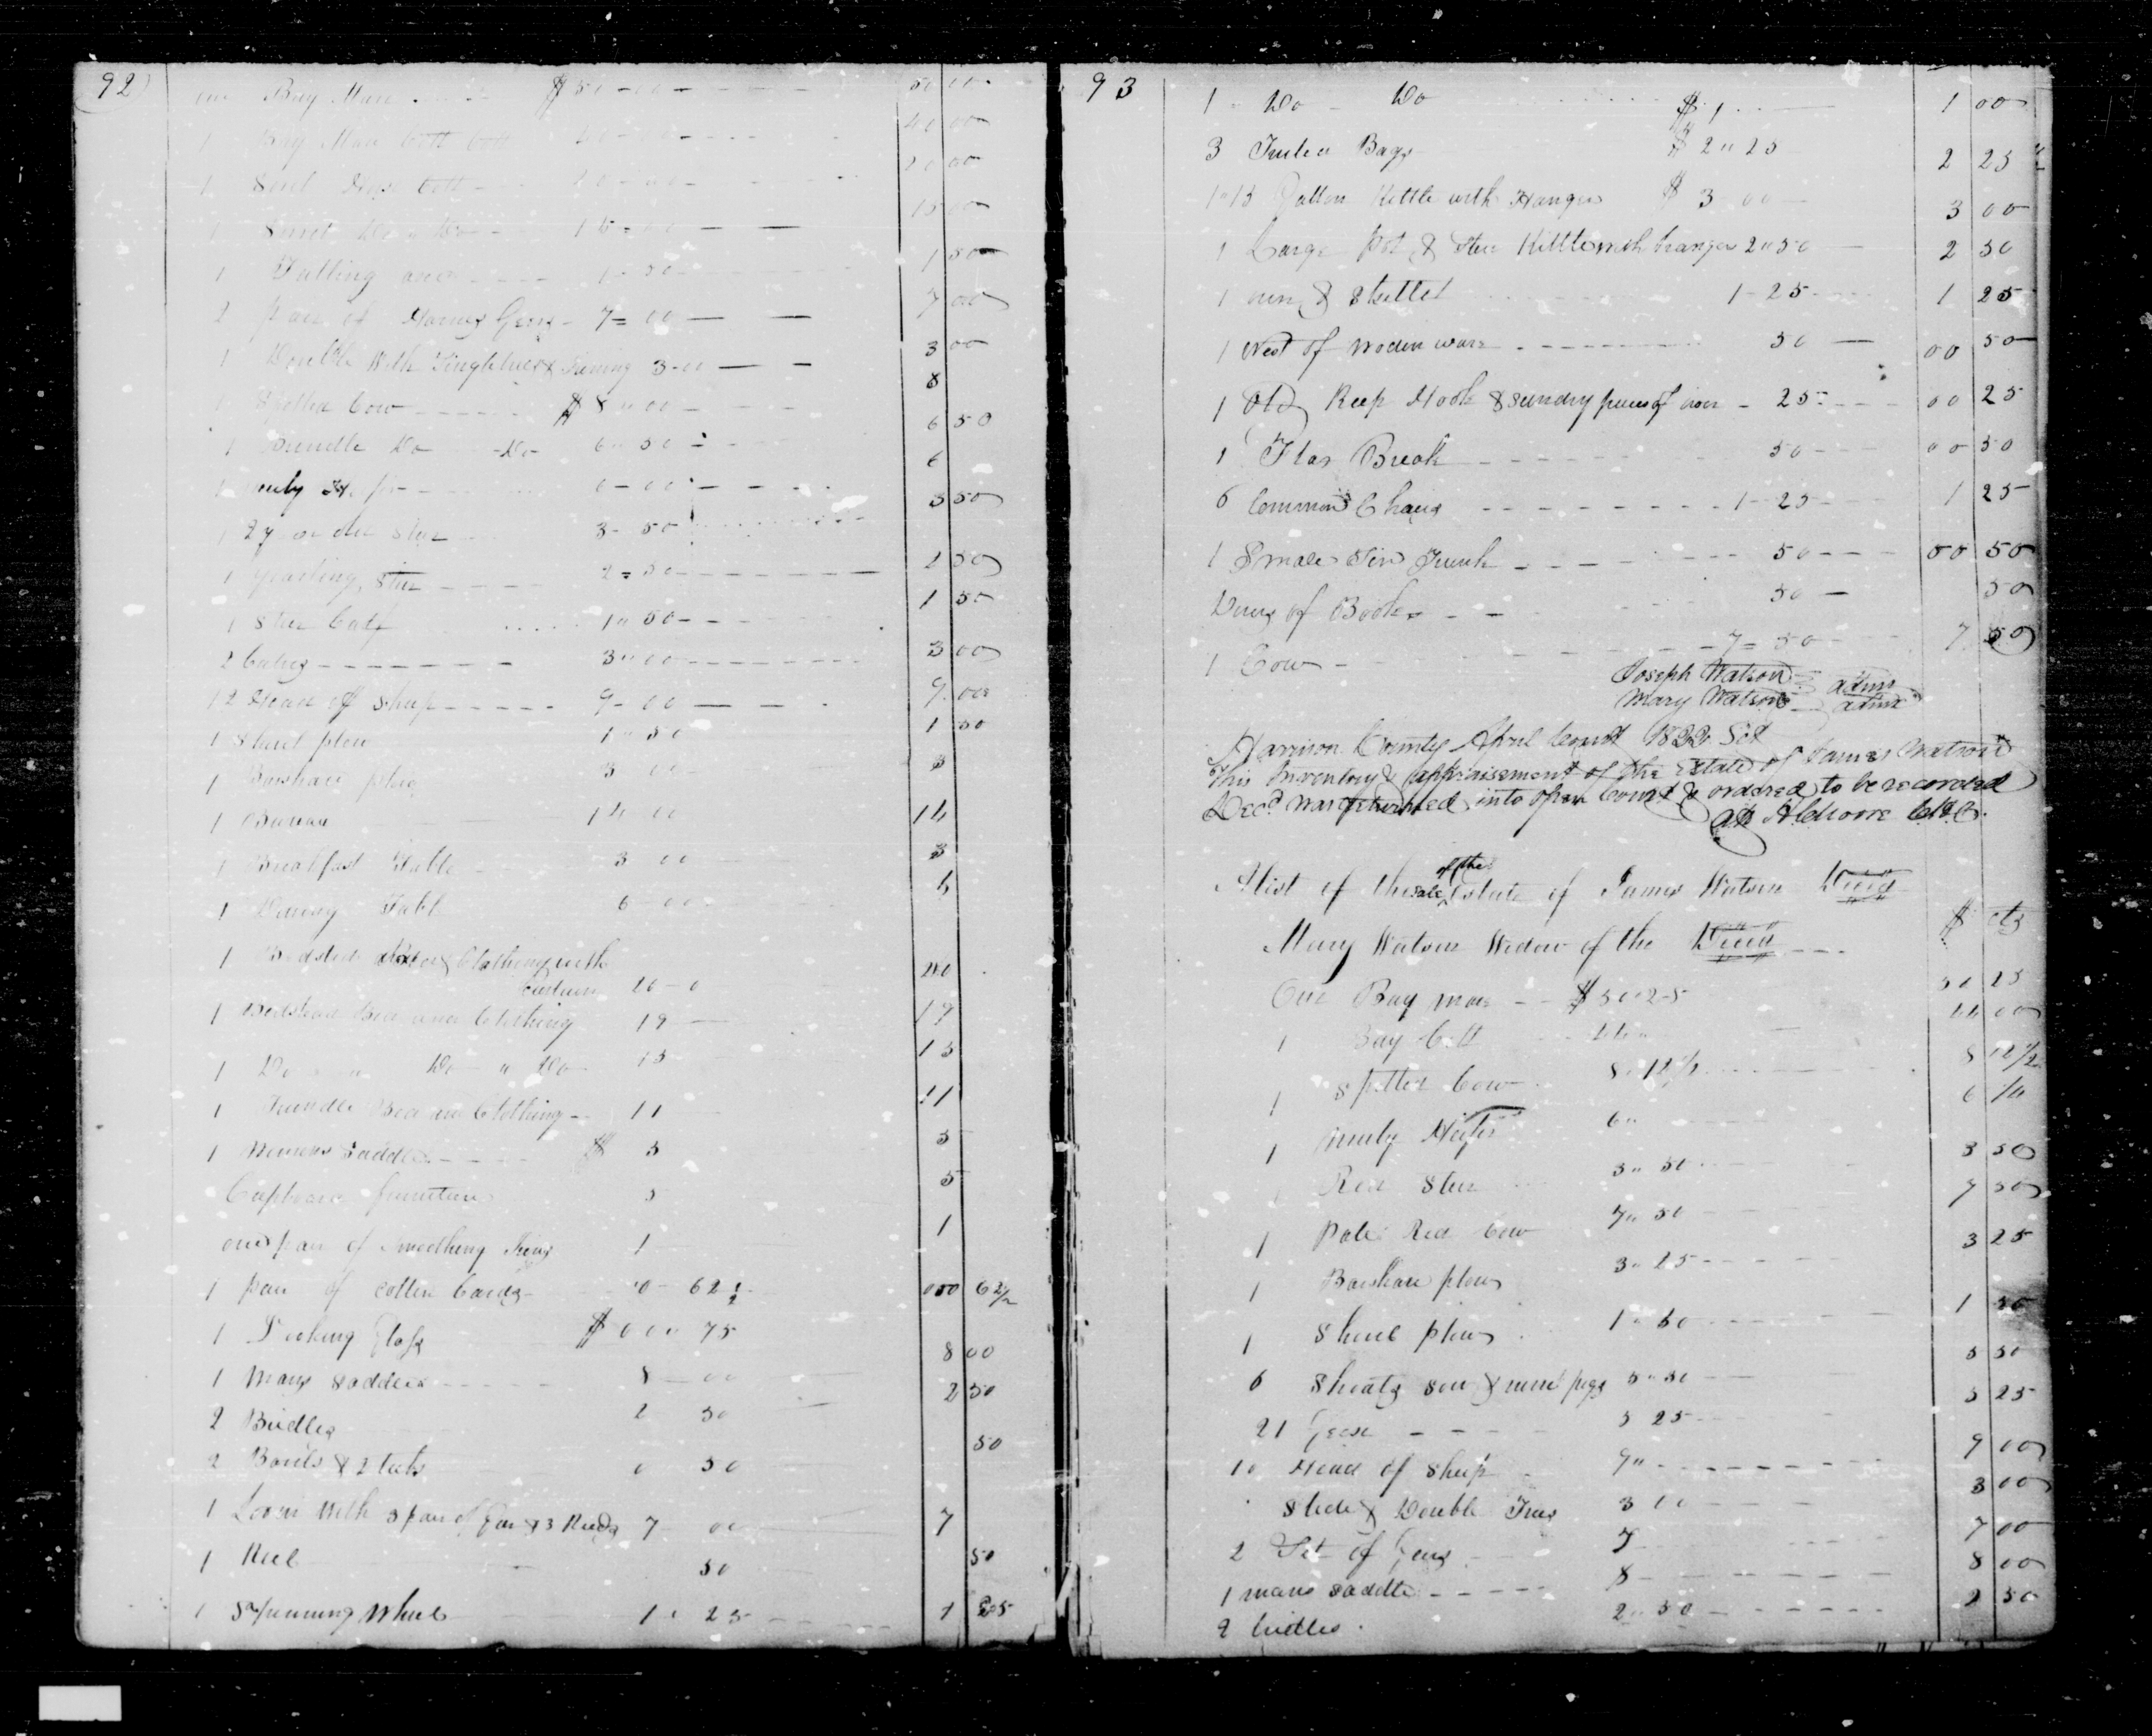 92
one Bay Mare $50-00 50 00
1 Bay Mare Colt 40-00 40 00
1 Sorel Colt 20-00 20 00
1 Sorrel Do " Do 15-00 15 00
1 Falling axe 1-50 1 50
2 pair of Horses Gears 7=00 7 00
1 Double With Singletrees 3-00 3 00
1 Spotted Cow $8"00 8
1 Brindle Do Do 6"50 6 50
1 muly 6-00 6
1 2 y older Steer 3-50 3 50
1 yearling Steer 2=50 2 50
1 Steer Calf 1"50 1 50
2 Calves 3"00 3 00
12 Head of Sheep 9-00 9.00
1 Shovel plow 1"50 1 50
1 Barshare plow 3 00 3
1 Bureau 14 00 14
1 Breakfast Table 3 00 3
1 Dining Table 6 00 6
1 Bedsted Bed & Clothing with
Curtain 20-0 20
1 Bedstead Bed and Clothing 19 19
1 Do " Do " Do 13 13
1 Trundle Bed and Clothing 11 11
1 Womens Saddle $ 5 5
Cupboard furniture 5 5
one pair of Smoothing Irons 1 1
1 pair of Cotten Cards 0-62 1/2 000 62 1/2
1 Looking Glass $00" 75
1 Mans Saddle 8-00 8 00
2 Bridles 2 50 2 50
2 Barils & 2 tubs 0 50 50
1 Loom With 3 pair of Gears & 3 Reeds 7 00 7
1 Reel 50 50
1 Spinning Wheel 1" 25 1 25
93
1 " Do - Do $1 1 00
3 Bags $2"25 2 25
1"13 Gallon Kettle with Hanger $3 00 3 00
1 Large Pot & Stew Kittle with hanger 2"50 2 50
1 oven & Skillet 1-25 1 25
1 Nest of Woden ware 50 00 50
1 Old Reep Hook & Sundry pieces of iron 25 00 25
1 Flax Break 50 00 50
6 Common Chairs 1-25 1 25
1 Smale Tin Trunk 50 00 50
Divers of Books 50 50
1 Cow 7=50 7 50
Joseph Watson admr
Mary Watson admx
Harrison County April Court 1822 Sct
This Inventory & appraisement of the Estate of James Watson
Decd was returned into open Court & ordered to be recorded
att
A list of the sale of the Estate of James Watson Decd
Mary Watson Widow of the Decd $ cts
One Bay mare $50"25 50 25
1 Bay Colt 00
1 Spotted Cow 8"12 1/2 8 12 1/2
1 muly Heifer 6"
Red Steer 3"50 3 50
1 Pale Red Cow 7"50 7 50
1 Barshare plow 3"25 3 25
1 Shovel plow 1"50 1 50
6 Shoats Sow & nine pigs 5"50 5 50
21 Geese 5 25 5 25
10 Head of Sheep 9" 9 00
Slide & Double Trees 3 00 3 00
2 Set of Gears 7 7 00
1 mans Saddle 8 8 00
2 bridles 2"50 2 50